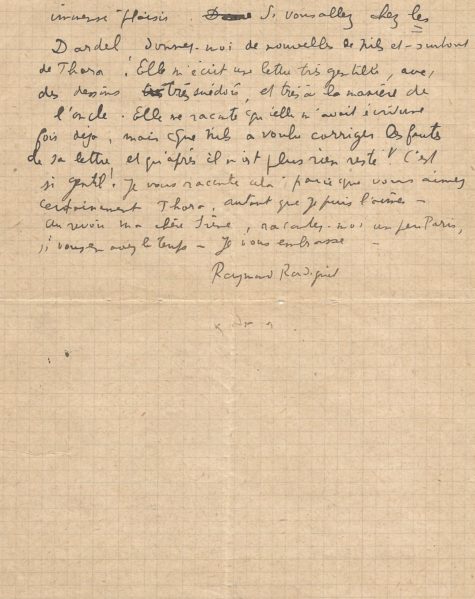 immense plaisir. Si vous allez chez les
Dardel donnez-moi de nouvelles de Nils et surtout
de Thora ! Elle m'écrit une lettre très gentille, avec
des dessins très suédois, et très à la manière de
l'oncle. Elle me raconte qu'elle m'avait écrit une
fois déjà, mais que Nils a voulu corriger les fautes
de sa lettre et qu'après il n'est plus rien resté ! C'est
si gentil ! Je vous raconte cela parce que vous aimez
certainement Thora, autant que je puis l'aimer —
au revoir ma chère Irène, racontez-moi un peu Paris,
si vous en avez le temps — Je vous embrasse —
Raymond Radiguet